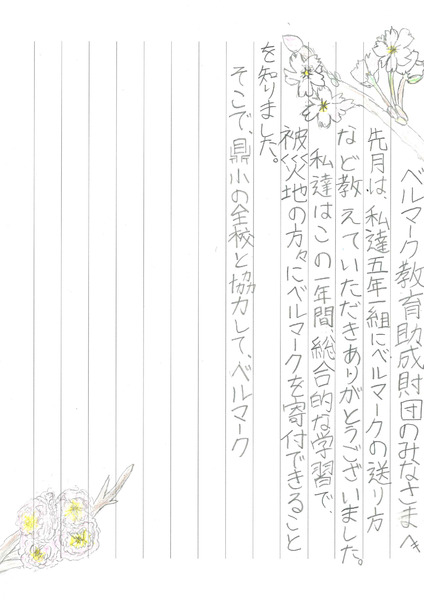 ベルマーク教育助成財団のみなさまへ
先月は、私達五年一組にベルマークの送り方
など教えていただきありがとうございました。
私達はこの一年間、総合的な学習で、
被災地の方々にベルマークを寄付できること
を知りました。
そこで、鼎小の全校と協力して、ベルマーク